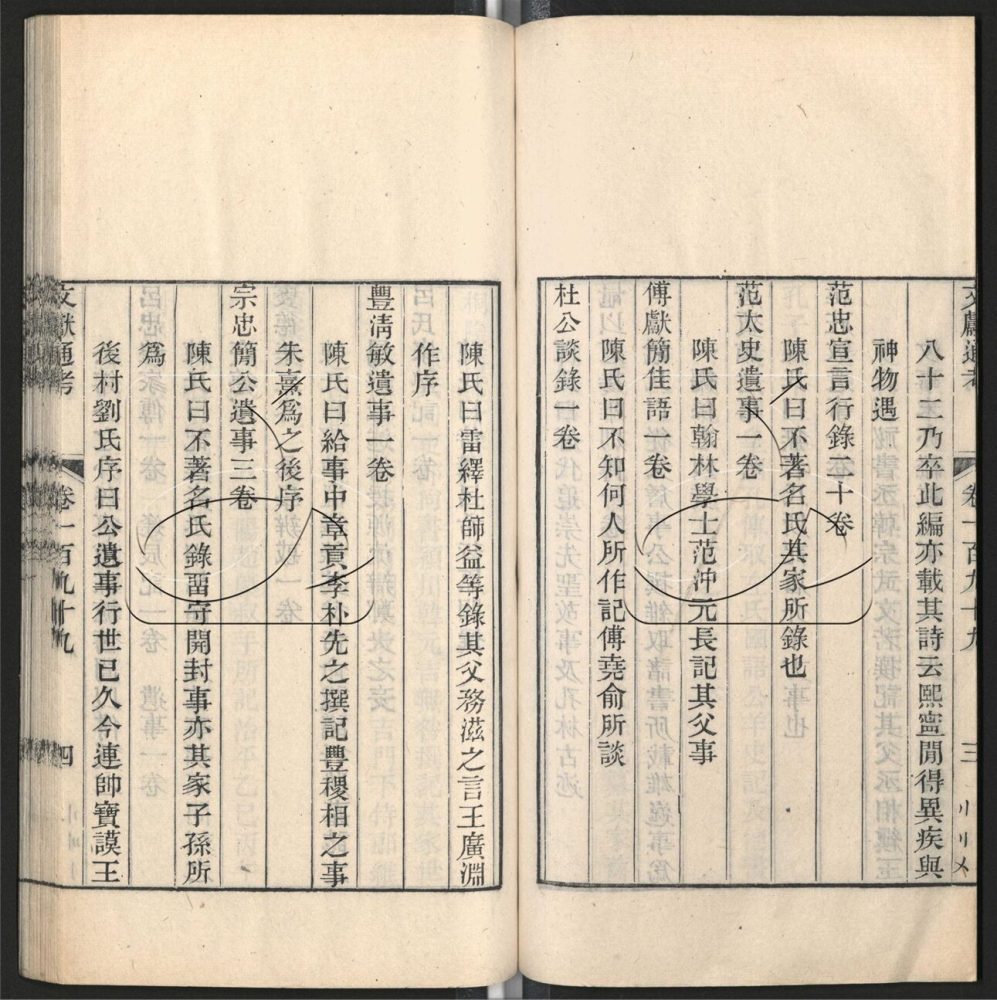 八十二乃卒此編亦載其詩云熙寧閒得異疾與
神物遇
范忠宣言行錄二十卷
陳氏曰不著名氏其家所錄也
范太史遺事一卷
陳氏曰翰林學士范沖元長記其父事
傅獻簡佳語一卷
陳氏曰不知何人所作記傅堯俞所談
杜公談錄一卷
文獻通考 卷一百九十九 三
陳氏曰雷繹杜師益等錄其父務滋之言王廣淵
作序
豐淸敏遺事一卷
陳氏曰給事中章貢李朴先之撰記豐稷相之事
朱熹爲之後序
宗忠簡公遺事三卷
陳氏曰不著名氏錄畱守開封事亦其家子孫所
爲
後村劉氏序曰公遺事行世已久今連帥寶謨王
文獻通考 卷一百九十九 四